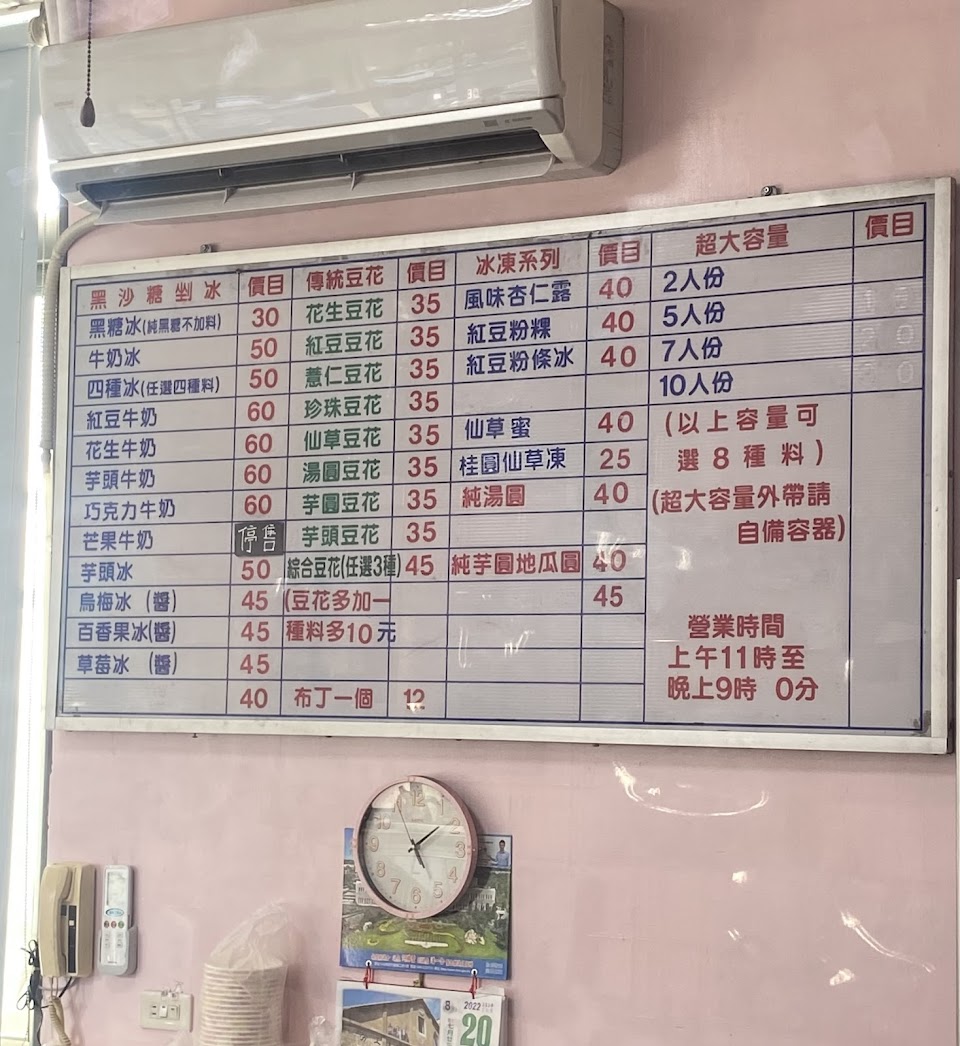 黑沙糖剉冰 價目
黑糖冰(純黑糖不加料) 30
牛奶冰 50
四種冰(任選四種料) 50
紅豆牛奶 60
花生牛奶 60
芋頭牛奶 60
巧克力牛奶 60
芒果牛奶 停售
芋頭冰 50
烏梅冰 (醬) 45
百香果冰(醬) 45
草莓冰 (醬) 45
40
傳統豆花 價目
花生豆花 35
紅豆豆花 35
薏仁豆花 35
珍珠豆花 35
仙草豆花 35
湯圓豆花 35
芋圓豆花 35
芋頭豆花 35
綜合豆花(任選3種) 45
(豆花多加一
種料多10元
布丁一個 12
冰凍系列 價目
風味杏仁露 40
紅豆粉粿 40
紅豆粉條冰 40
仙草蜜 40
桂圓仙草凍 25
純湯圓 40
純芋圓地瓜圓 40
45
超大容量 價目
2人份
5人份
7人份
10人份
(以上容量可
選8種料)
(超大容量外帶請
自備容器)
營業時間
上午11時至
晚上9時 0分
12
1
2
3
4
5
6
7
8
9
10
11
8
2022
20